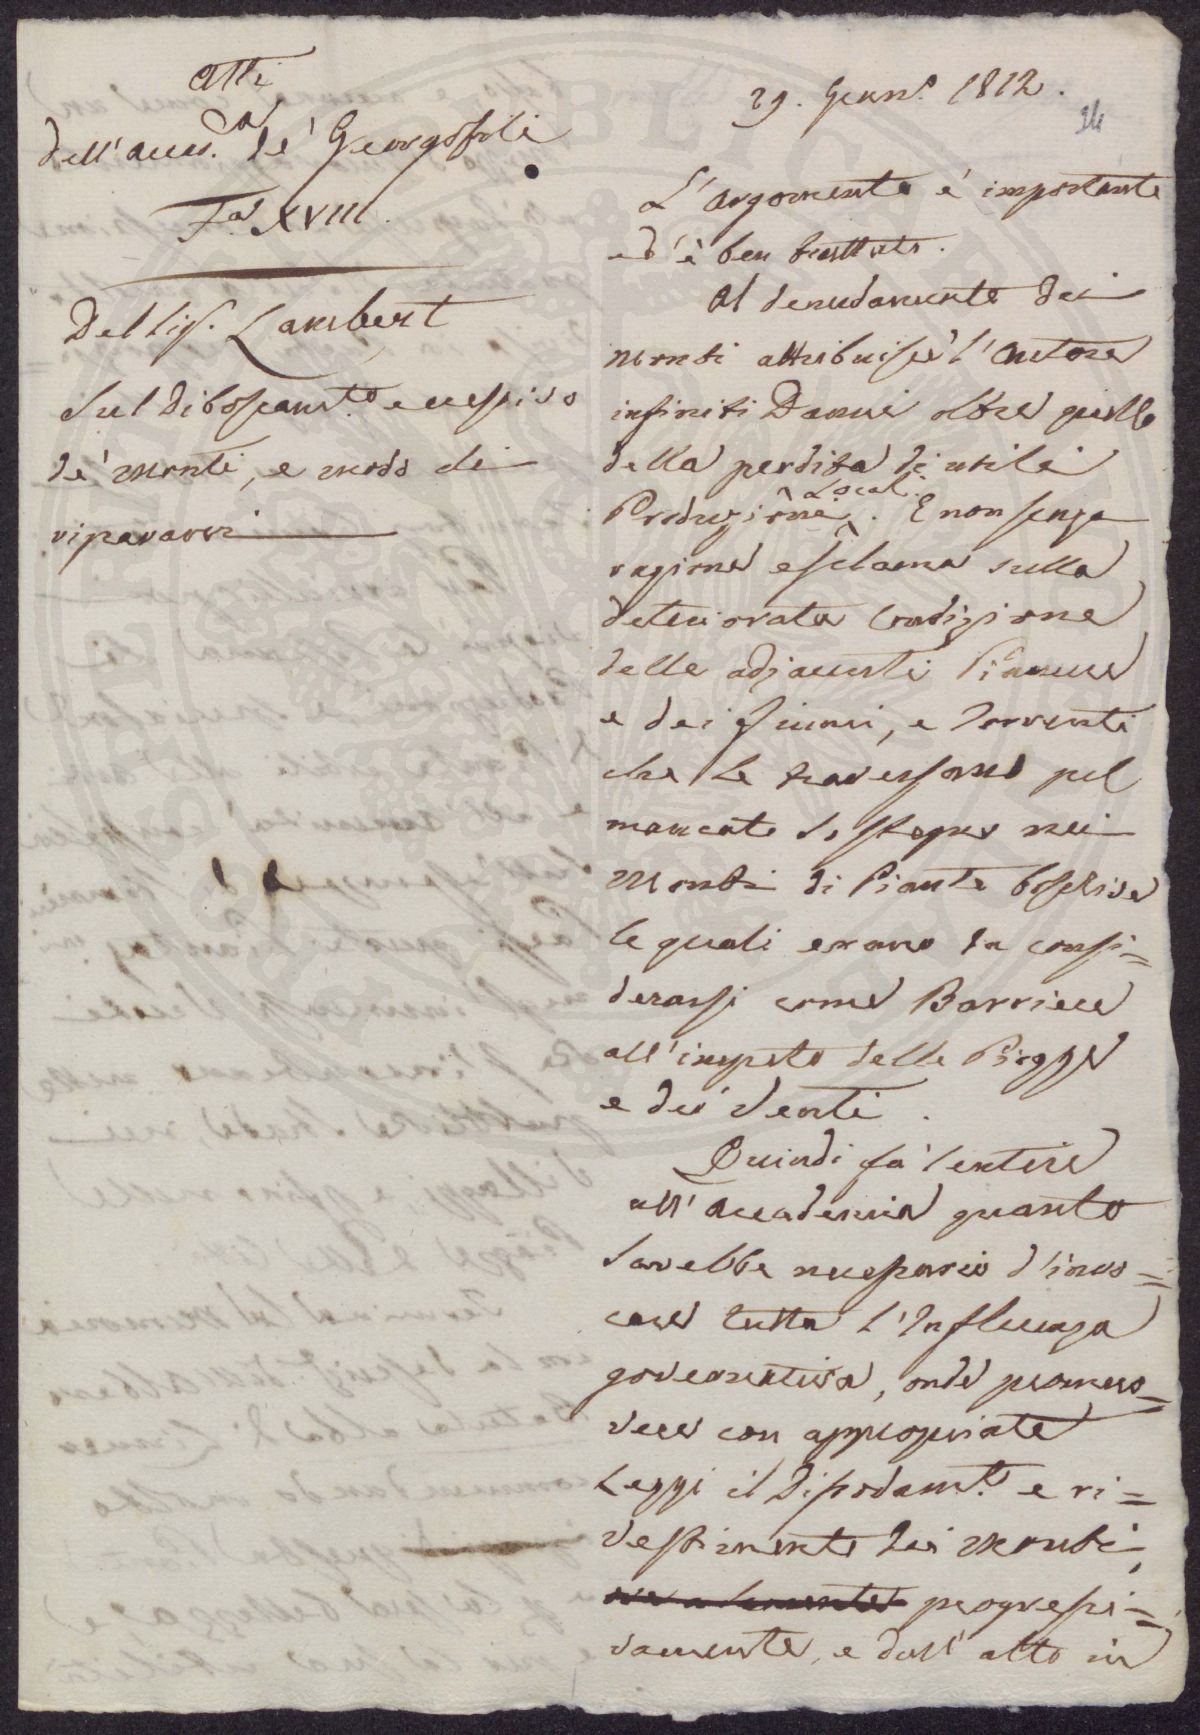 Atti
dell'Accad.ª de' Georgofili
F.ª XVIII.
Del Sig. Lambert
Sul diboscam.to eccessivo
de' Monti, e modo di
ripararvi
29. Genn.º 1812.
24
L'argomento è importante
ed è ben trattato.
Al denudamento dei
Monti attribuisce l'Autore
infiniti Danni oltre quello
della perdita di utili
Produzioni Locali. E non senza
ragione esclama sulla
deteriorata Condizione
delle adjacenti Pianure
e dei fiumi, e Torrenti
che le traversano pel
mancato sostegno nei
Monti di Piante boschive
le quali erano da consi=
derarsi come Barriere
all'impeto delle Piogge
e dei Venti.
Quindi fa sentire
all'Accademia quanto
sarebbe necessario d'invo=
care tutta l'Influenza
governativa, onde promuo=
vere con appropriate
Leggi il e ri=
vestimento dei Monti,
progressi=
vamente, e dall'alto in